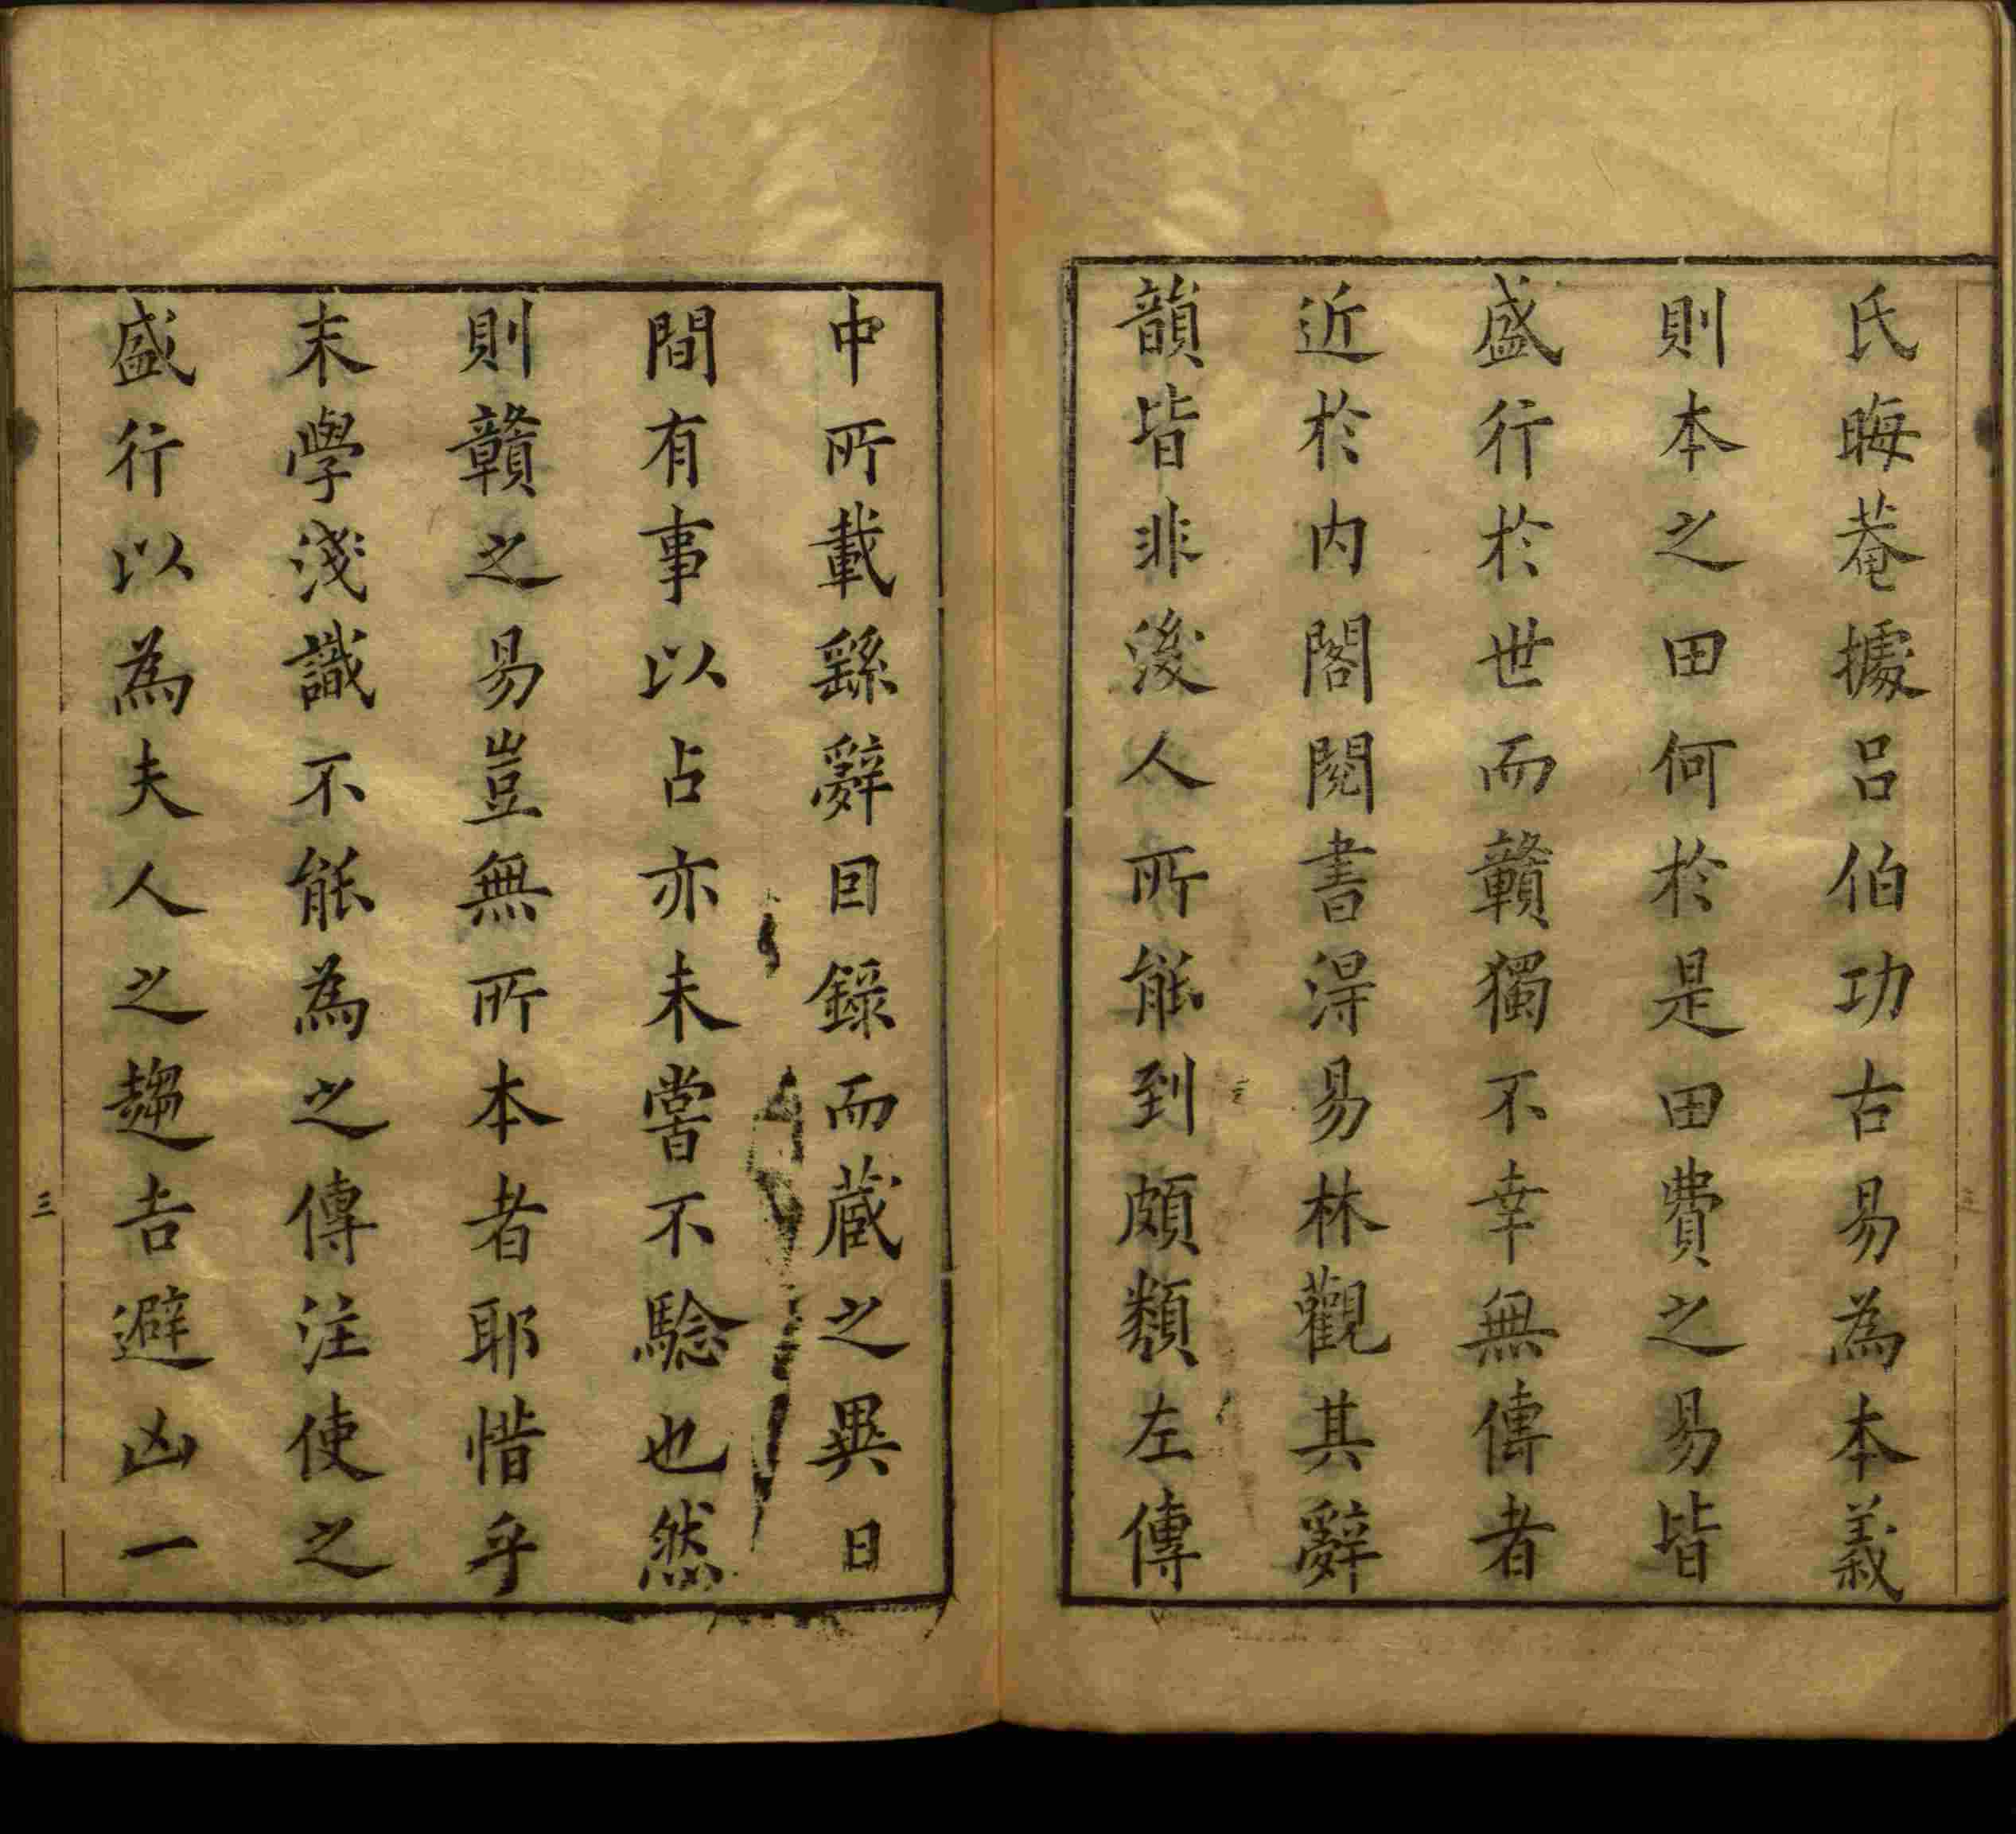 氏晦菴據吕伯功古易為本義
則本之田何於是田費之易皆
盛行於世而贛獨不幸無傳者
近於内閣閱書淂易林觀其辭
韻皆非後人所能到頗類左傳
中所載繇辭因錄而蔵之異日
間有事以占亦未嘗不騐也然
則贛之易豈無所本者耶惜乎
末學淺識不能為之傳注使之
盛行以為夫人之趨吉避凶一
三